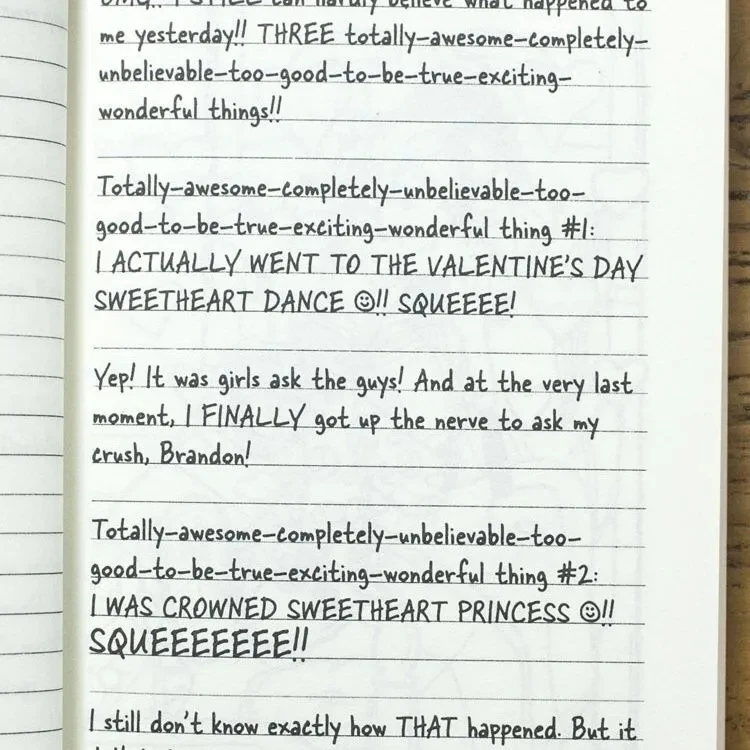 OMG!! I STILL can hardly believe what happened to
me yesterday!! THREE totally–awesome–completely–
unbelievable–too–good–to–be–true–exciting–
wonderful things!!
Totally–awesome–completely–unbelievable–too–
good–to–be–true–exciting–wonderful thing #1:
I ACTUALLY WENT TO THE VALENTINE'S DAY
SWEETHEART DANCE ☺!! SQUEEEE!
Yep! It was girls ask the guys! And at the very last
moment, I FINALLY got up the nerve to ask my
crush, Brandon!
Totally–awesome–completely–unbelievable–too–
good–to–be–true–exciting–wonderful thing #2:
I WAS CROWNED SWEETHEART PRINCESS ☺!!
SQUEEEEEEE!!
I still don't know exactly how THAT happened. But it